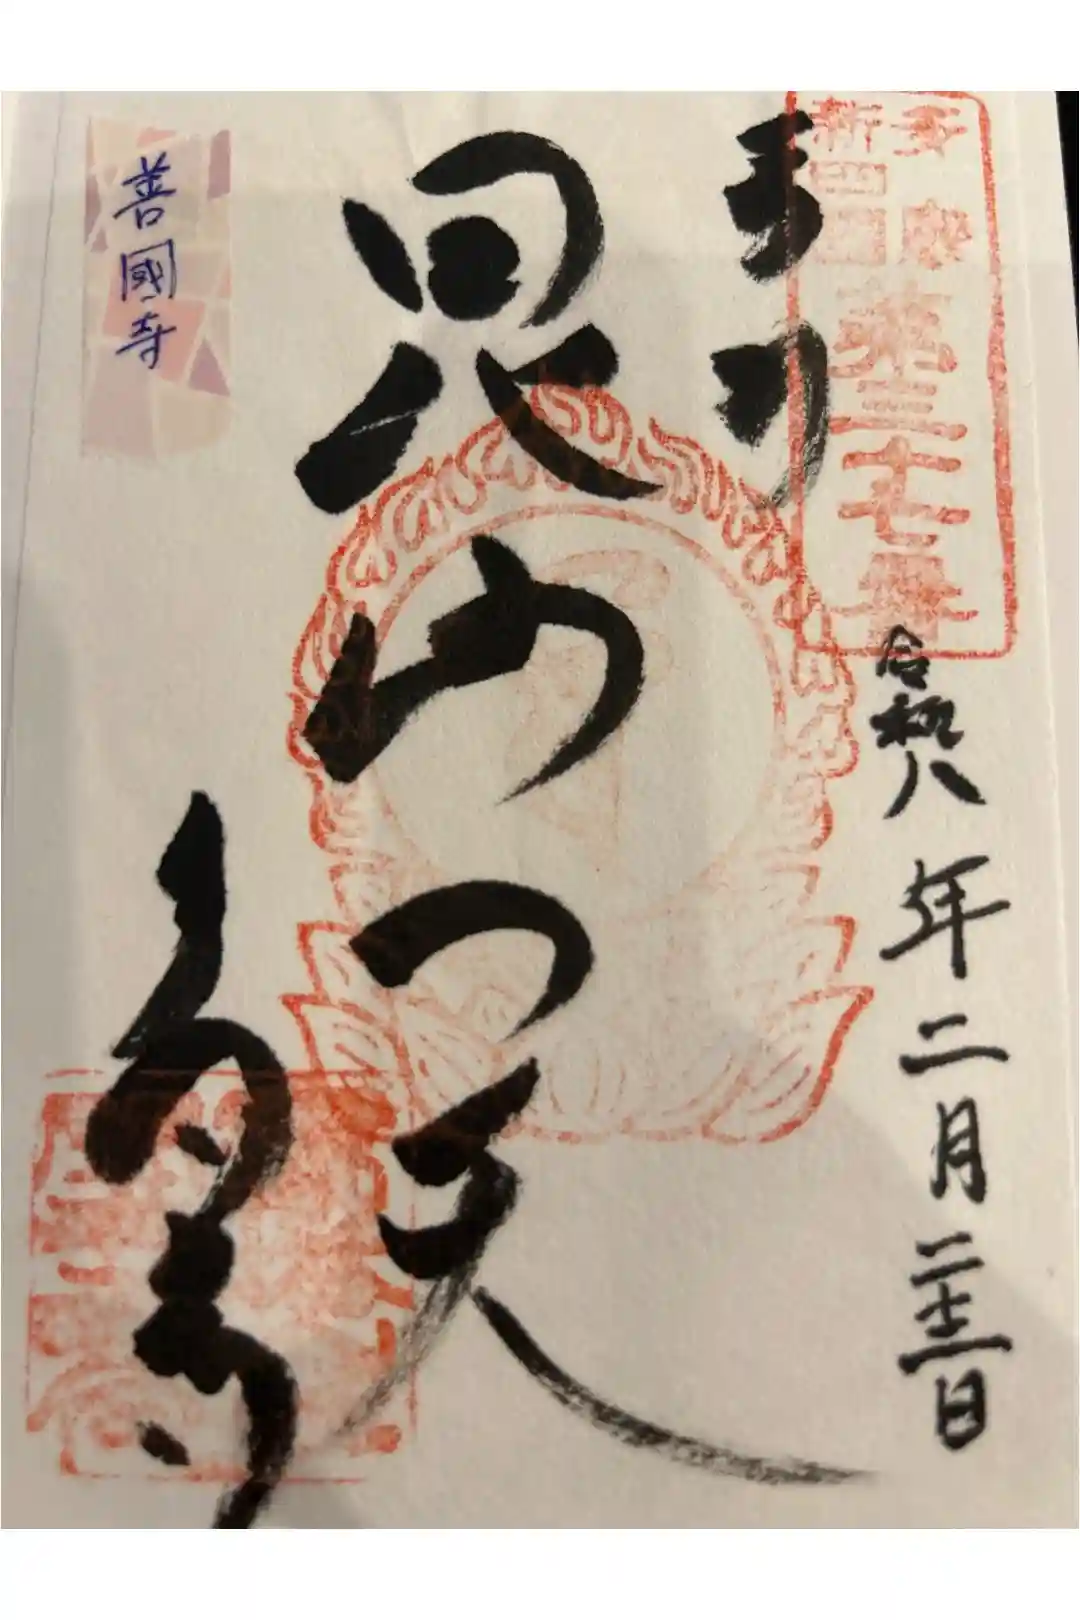 奉拝
多摩
新四国
第三十七番
令和八年二月
日
毘沙門天
善國寺